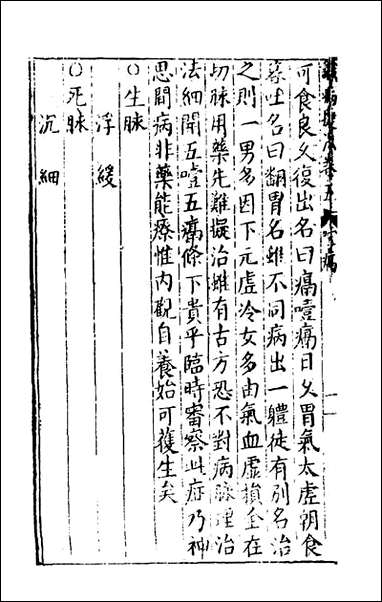 卷五
可食良久復出名曰膈噎膈日久胃氣太虛朝食
暮吐名曰翻胃名雖不同病出一體徒有別名治
之則一男多因下元虛冷女多由氣血虛損全在
切脉用藥先難擬治雖有古方恐不對病脉理治
法細開五噎五膈條下貴乎臨時審察此症乃神
思間病非藥能療惟内觀自養始可獲生矣
○生脉
浮緩
○死脉
沉細